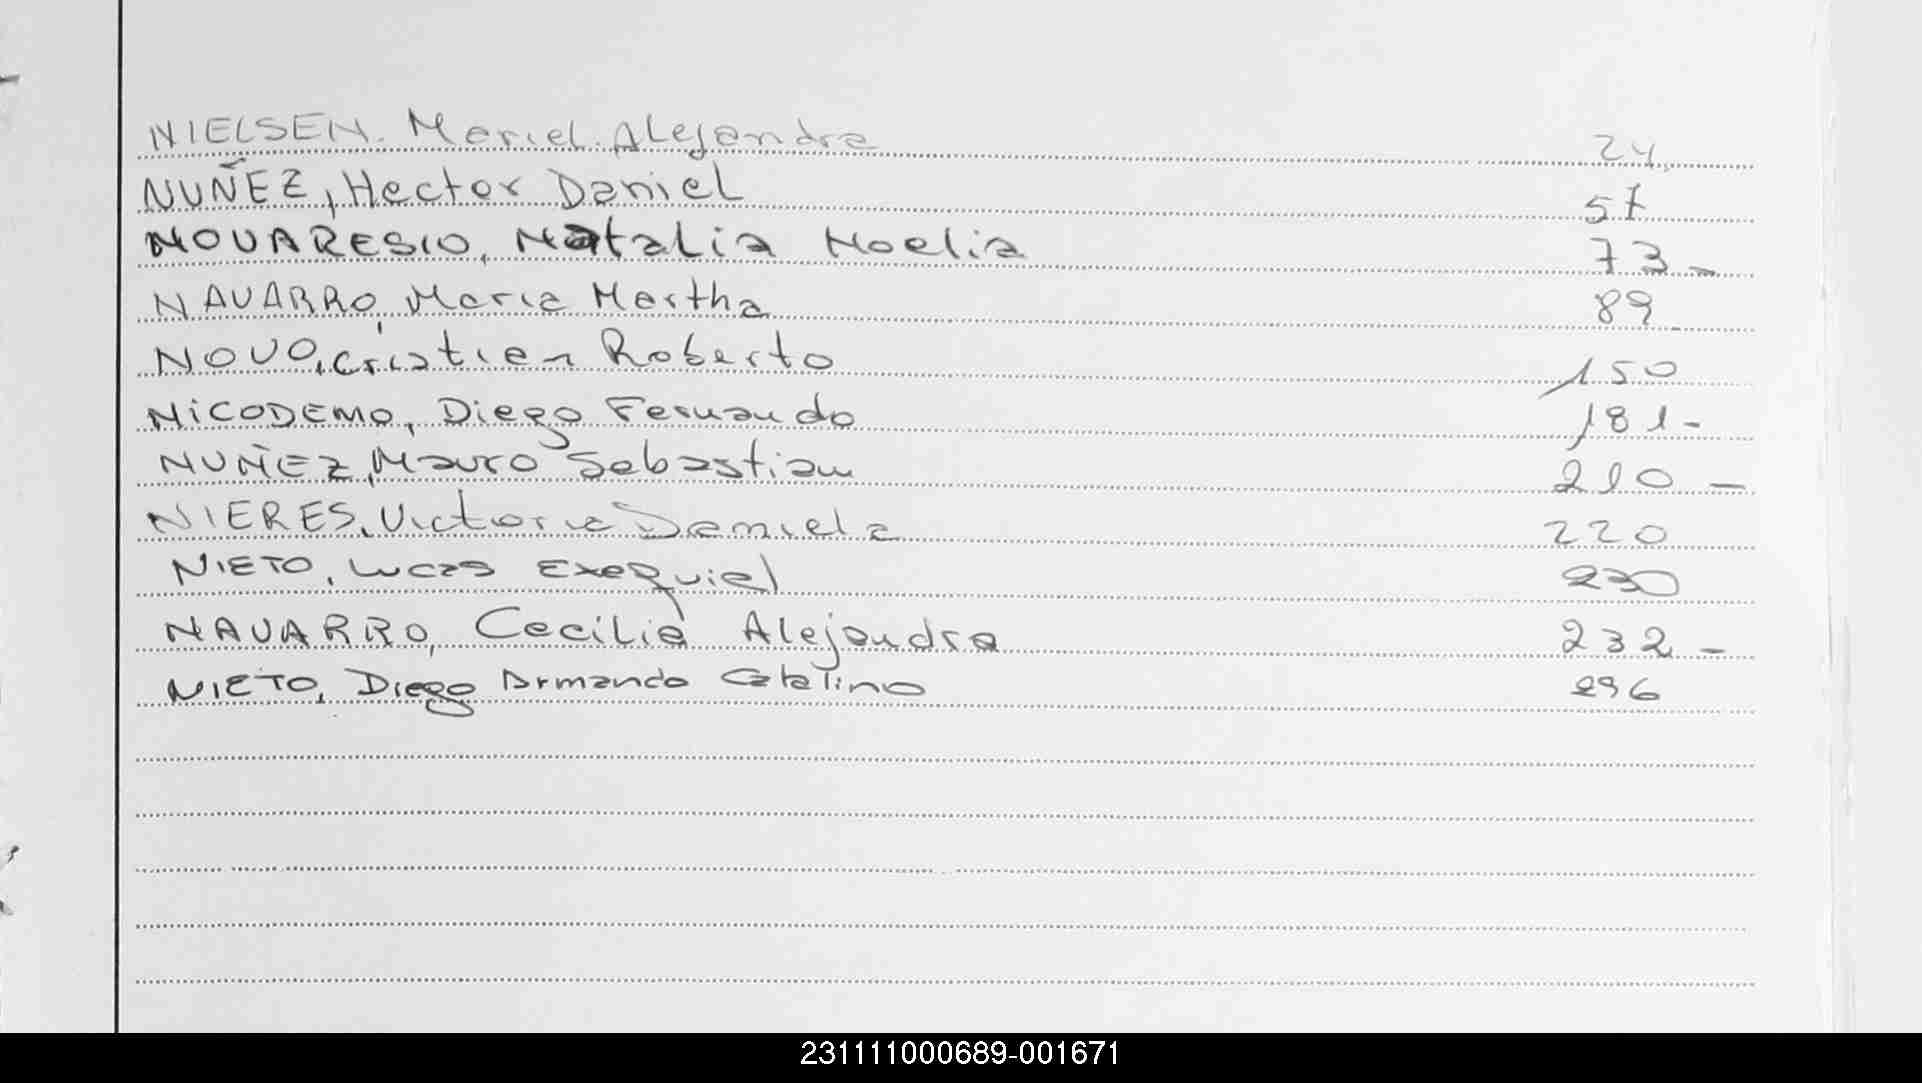 NIELSEN. Mariel Alejandra 24
NUÑEZ, Hector Daniel 57
NOVARESIO, Natalia Noelia 73-
NAVARRO, Maria Martha 89
NOVO, Cristian Roberto 150
NICODEMO, Diego Fernando 181-
NUÑEZ, Mauro Sebastian 210-
NIERES, Victoria Daniela 220
NIETO, Lucas Exequiel 230
NAVARRO, Cecilia Alejandra 232-
NIETO, Diego Armando Catalino 296
231111000689-001671